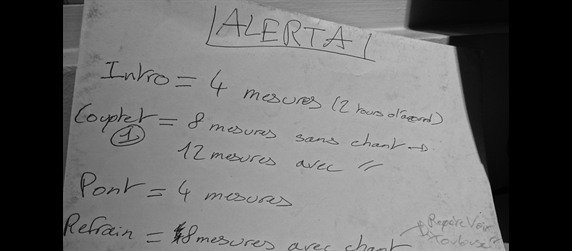 |ALERTA|
Intro = 4 mesures (2 tours d'accord)
Couplet = 8 mesures sans chant →
① 12 mesures avec //
Pont = 4 mesures
Refrain = 8 mesures avec chant
Repère Voix
Toulouse